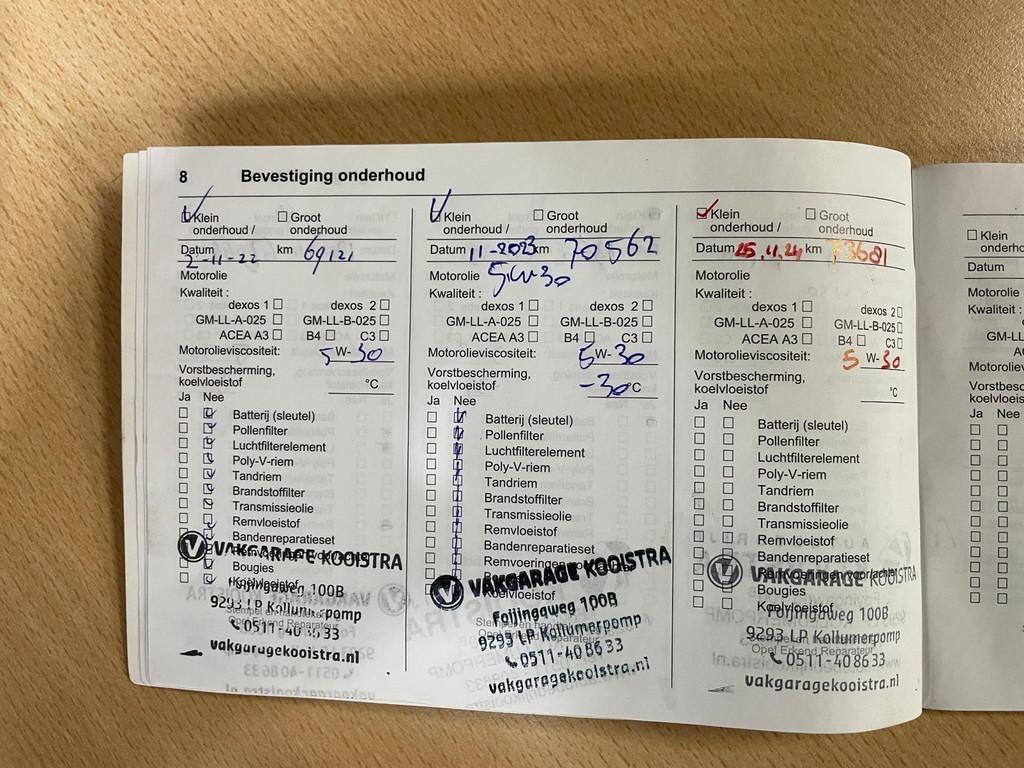 8 Bevestiging onderhoud
Klein onderhoud /
Groot onderhoud
Datum 2-11-22 km 69121
Motorolie
Kwaliteit :
dexos 1 dexos 2
GM-LL-A-025 GM-LL-B-025
ACEA A3 B4 C3
Motorolieviscositeit: 5 W- 30
Vorstbescherming,
koelvloeistof °C
Ja Nee
Batterij (sleutel)
Pollenfilter
Luchtfilterelement
Poly-V-riem
Tandriem
Brandstoffilter
Transmissieolie
Remvloeistof
Bandenreparatieset
Bougies
Koelvloeistof
VAKGARAGE KOOISTRA
Foijingaweg 100B
9293 LP Kollumerpomp
Opel Erkend Reparateur
vakgaragekooistra.nl
Klein onderhoud /
Groot onderhoud
Datum 11-2023 km 70562
Motorolie 5W30
Kwaliteit :
dexos 1 dexos 2
GM-LL-A-025 GM-LL-B-025
ACEA A3 B4 C3
Motorolieviscositeit: 5 W- 30
Vorstbescherming,
koelvloeistof -30 °C
Ja Nee
Batterij (sleutel)
Pollenfilter
Luchtfilterelement
Poly-V-riem
Tandriem
Brandstoffilter
Transmissieolie
Remvloeistof
Bandenreparatieset
VAKGARAGE KOOISTRA
Foijingaweg 100B
9293 LP Kollumerpomp
0511-408633
vakgaragekooistra.nl
Klein onderhoud /
Groot onderhoud
Datum 25.11.24 km 73681
Motorolie
Kwaliteit :
dexos 1 dexos 2
GM-LL-A-025 GM-LL-B-025
ACEA A3 B4 C3
Motorolieviscositeit: 5 W- 30
Vorstbescherming,
koelvloeistof °C
Ja Nee
Batterij (sleutel)
Pollenfilter
Luchtfilterelement
Poly-V-riem
Tandriem
Brandstoffilter
Transmissieolie
Remvloeistof
Bandenreparatieset
VAKGARAGE KOOISTRA
Bougies
Koelvloeistof
Foijingaweg 100B
9293 LP Kollumerpomp
Opel Erkend Reparateur
0511-408633
vakgaragekooistra.nl
Klein
Datum
Motorolie
Kwaliteit :
Ja Nee